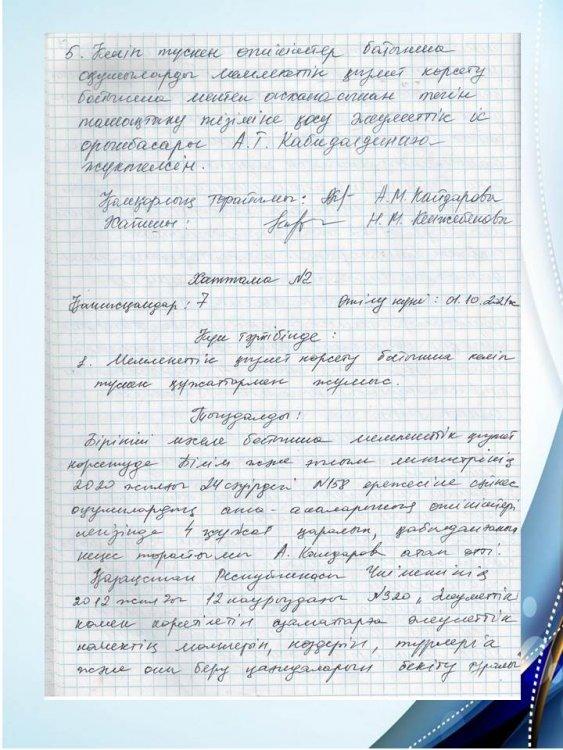 5. Келіп түскен өтініштер бойынша
оқушыларды мемлекеттік қызмет көрсету
бойынша мектеп асханасынан тегін
тамақтану тізіміне қосу әлеуметтік іс
орынбасары А.Т. Кабидалдинаға
жүктелсін.
Қамқорлық төрайымы: А.М. Кайдарова
Хатшы: Н.М. Кенжебекова
Хаттама №2
Қатысқандар: 7 Өтілу күні: 01.10.2021ж
Күн тәртібінде:
1. Мемлекеттік қызмет көрсету бойынша келіп
түскен құжаттармен жұмыс.
Тыңдалды:
Бірінші мәселе бойынша мемлекеттік қызмет
көрсетуде Білім және ғылым министрінің
2020 жылғы 24 сәуірдегі №158 ережесіне сәйкес
оқушылардың ата-аналарының өтініштері
негізінде 4 құжат қаралып, қабылданғанын
кеңес төрайымы А. Кайдарова атап өтті.
Қазақстан Республикасы Үкіметінің
2012 жылғы 12 наурыздағы №320 „Әлеуметтік
көмек көрсетілетін азаматтарға әлеуметтік
көмектің мөлшерін, көздерін, түрлерін
және оны беру қағидаларын бекіту туралы